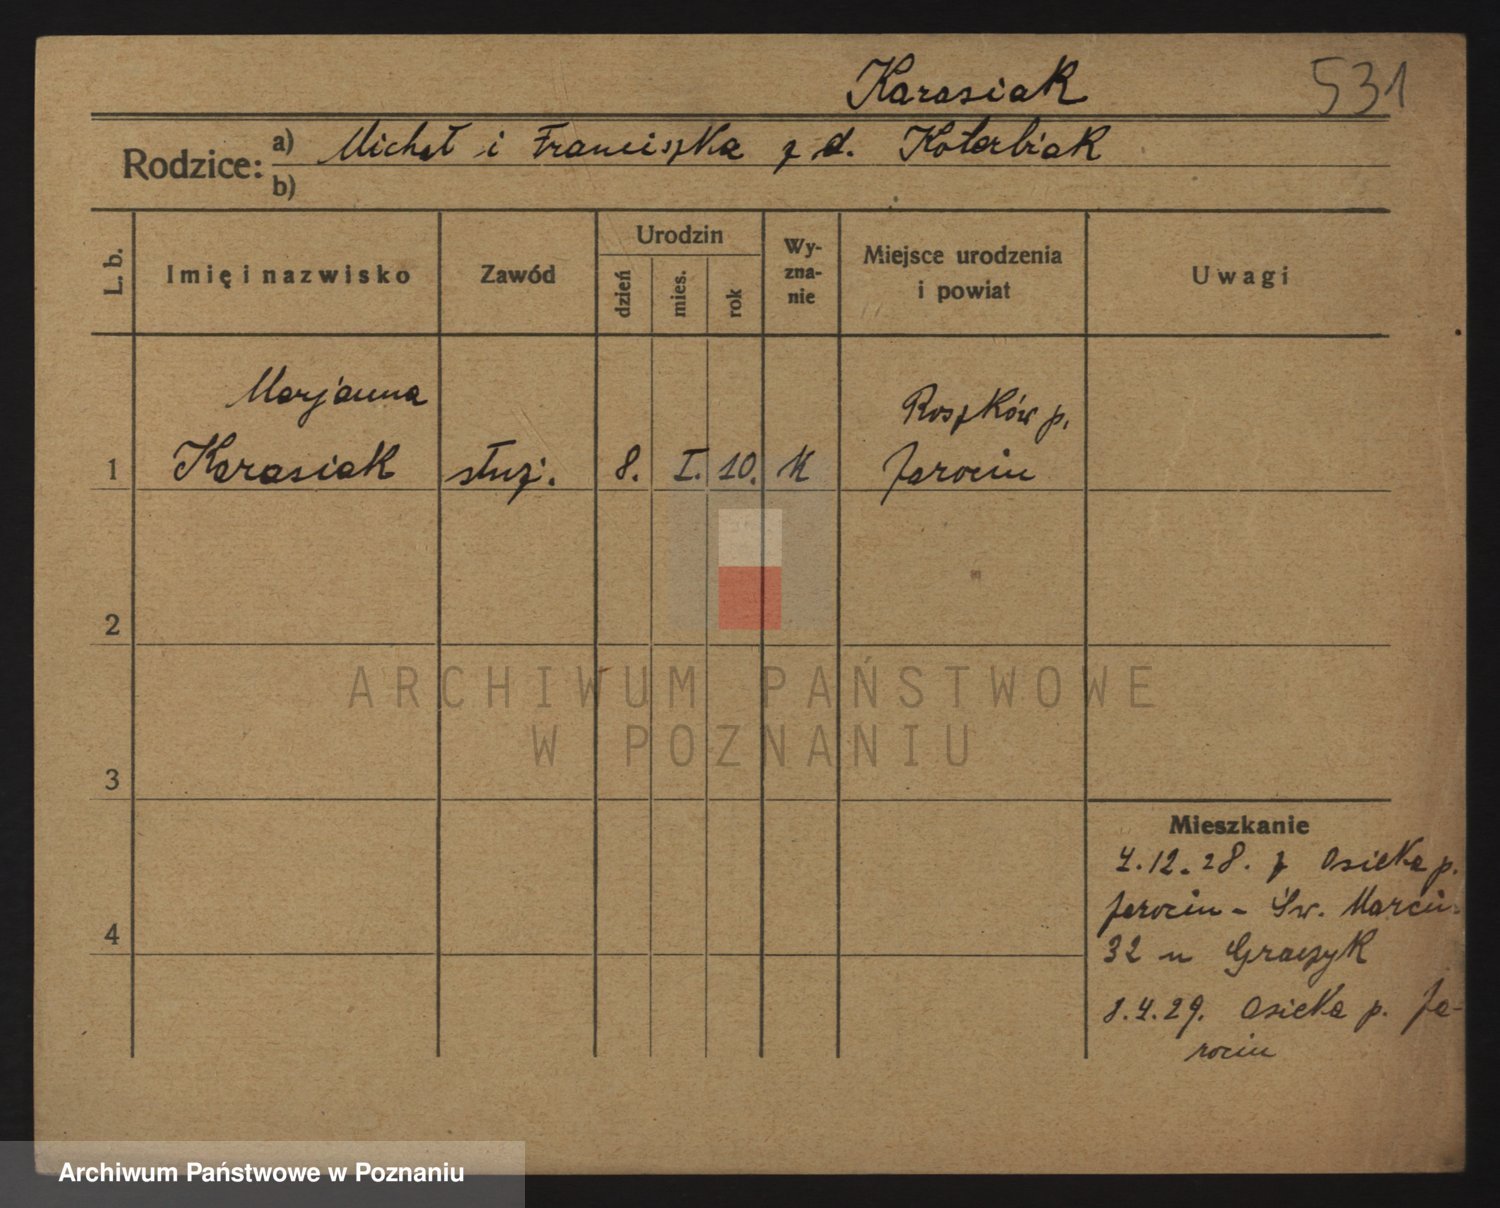 Karasiak
531
Rodzice: a) Michał i Franciszka z d. Koterbiak
b)
L. b.
Imię i nazwisko
Zawód
Urodzin
dzień
mies.
rok
Wy-
zna-
nie
Miejsce urodzenia
i powiat
Uwagi
Marjanna
Roszków p.
1 Karasiak służ. 8. I. 10. K Jarocin
2
ARCHIWUM PAŃSTWOWE
W POZNANIU
3
Mieszkanie
4.12.28. z Osieka p.
Jarocin - Św. Marcin
4
32 u Graczyk
8.4.29. Osieka p. Ja-
rocin
Archiwum Państwowe w Poznaniu